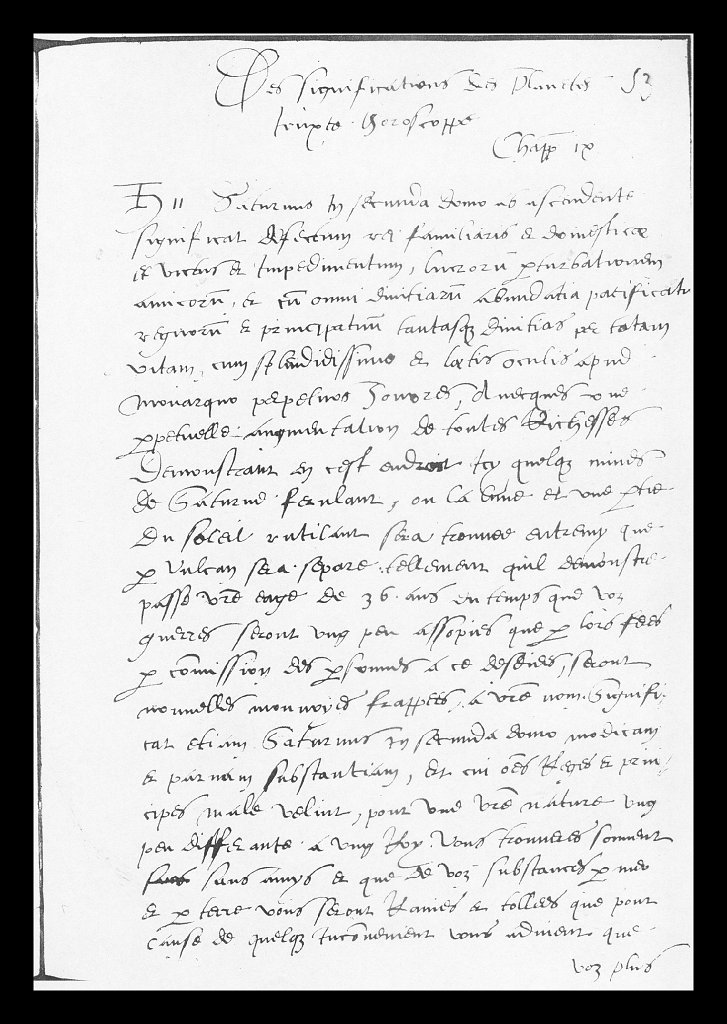 Des significations des Planetes 53
iouxte horoscoppe
Chapp ix
♄ 11 Saturnus in secunda domo ab ascendente
significat defectum rei familiaris et domesticæ
et victus et Impedimentum, lucrorū pturbationem
amicorū, et cū omni divitiarū abundātia pacificatū
regnorū et principatuū tantasq divitias per totam
vitam, cum splendidissimo et lætis oculis apud
monarquo perpetuos honores, Avecques une
ppetuelle augmentation de toutes Richesses
Demonstrant en cest endroit Icy quelq mines
de Saturne ferulant, ou la lune et une ptie
du soleil rutilant sera trouvee entremy que
p Vulcan sera separe tellement quil demonstre
passe vre eage de 36 ans en temps que voz
guerres seront ung peu assopies que p lors
p comission des psonnes a ce desdies, seront
nouvelles monnoyes frappees, a vre nom. Signifi-
cat etiam Saturnus in secunda domo modicam
et parvam substantiam, Et cui oes Reges et prin-
cipes male velint, pour une vre nature ung
peu differante a ung Roy. Vous trouveres souvent
sans amys et que de voz substances p mer
et p terre vous seront Ravies et tollees que pour
cause de quelq Inconvenient vous advient que
voz plus